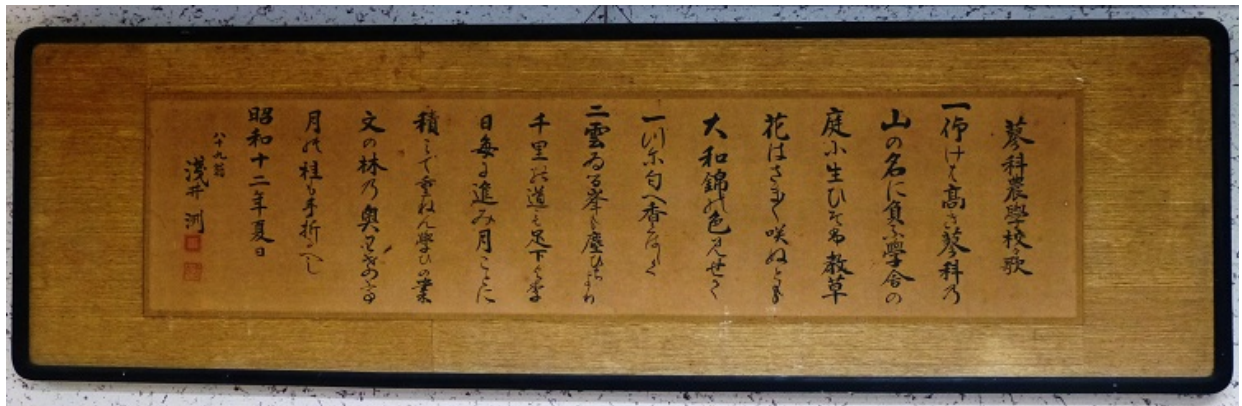 蓼科農學校々歌
一仰けは高き蓼科乃
山の名に負ふ學舎の
庭に生ひそふ教草
花はさまく咲ぬとも
大和錦の色見せて
一つに匂へ香くはしく
二雲ゐる峯も塵ひちより
千里の道も足下より
日毎に進み月ことに
積みて重ねん學ひの業
文の林乃奥
月の桂も手折へし
昭和十二年夏日
八十九翁
淺井洌